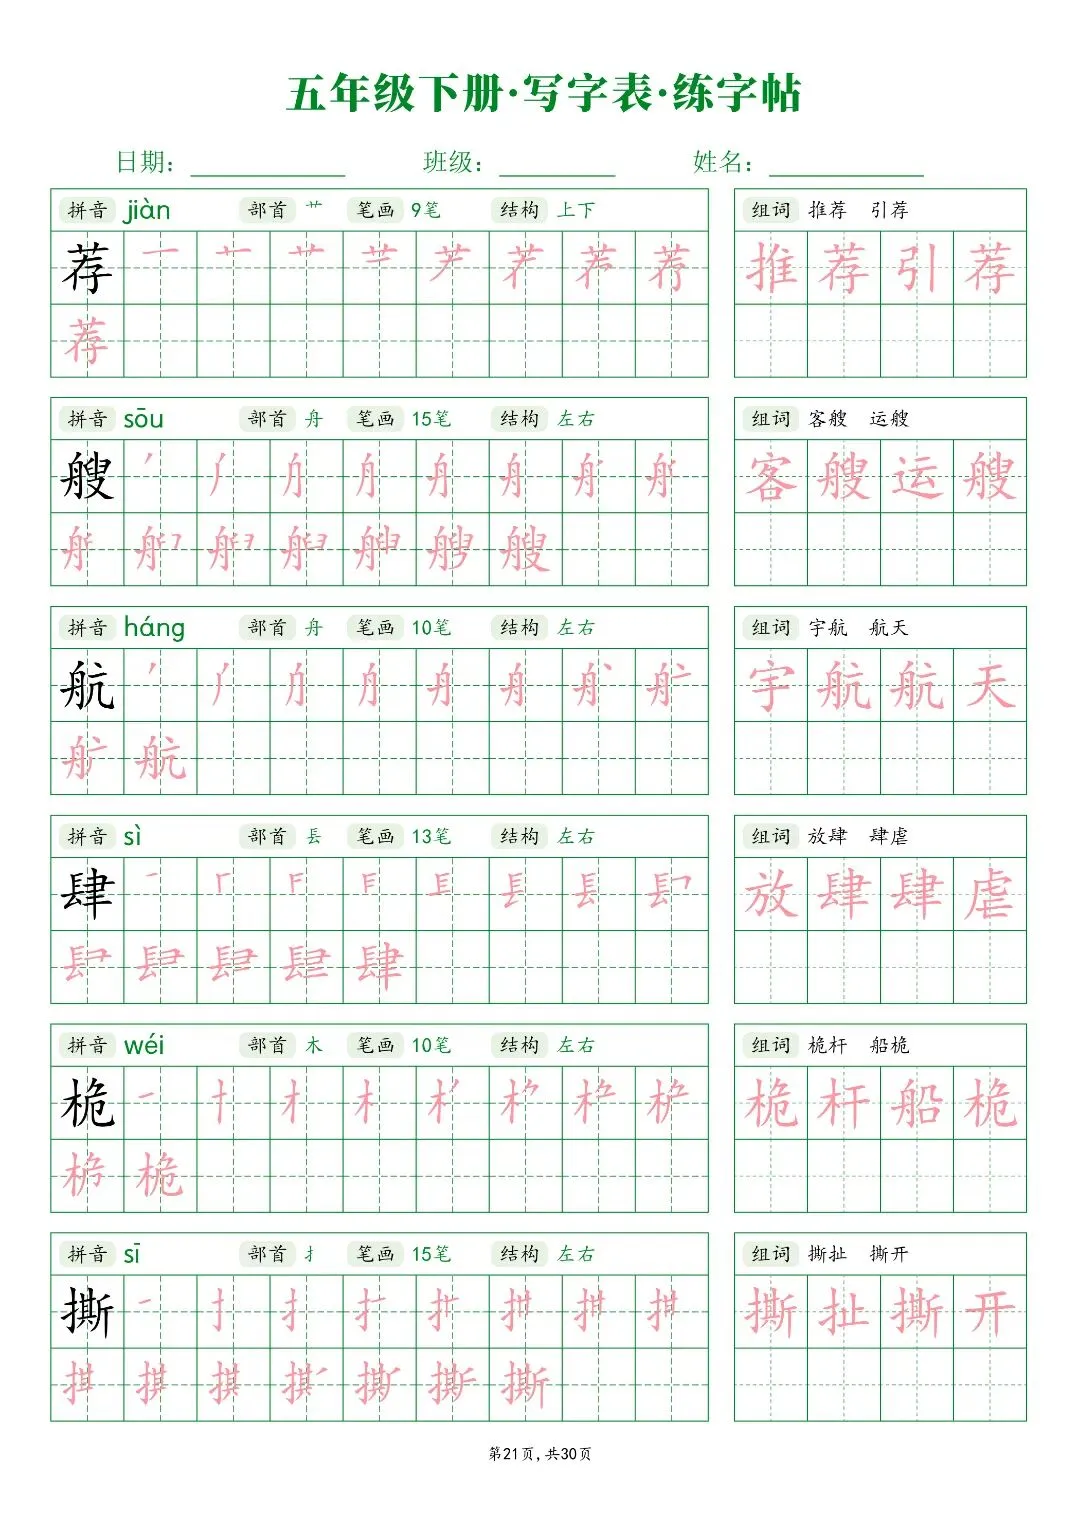 五年级下册·写字表·练字帖
日期： 班级： 姓名：
拼音 jiàn 部首 艹 笔画 9笔 结构 上下
荐
荐
组词 推荐 引荐
推荐引荐
拼音 sōu 部首 舟 笔画 15笔 结构 左右
艘
艘
组词 客艘 运艘
客艘运艘
拼音 háng 部首 舟 笔画 10笔 结构 左右
航
航
组词 宇航 航天
宇航航天
拼音 sì 部首 镸 笔画 13笔 结构 左右
肆
肆
组词 放肆 肆虐
放肆肆虐
拼音 wéi 部首 木 笔画 10笔 结构 左右
桅
桅
组词 桅杆 船桅
桅杆船桅
拼音 sī 部首 扌 笔画 15笔 结构 左右
撕
撕
组词 撕扯 撕开
撕扯撕开
第21页，共30页